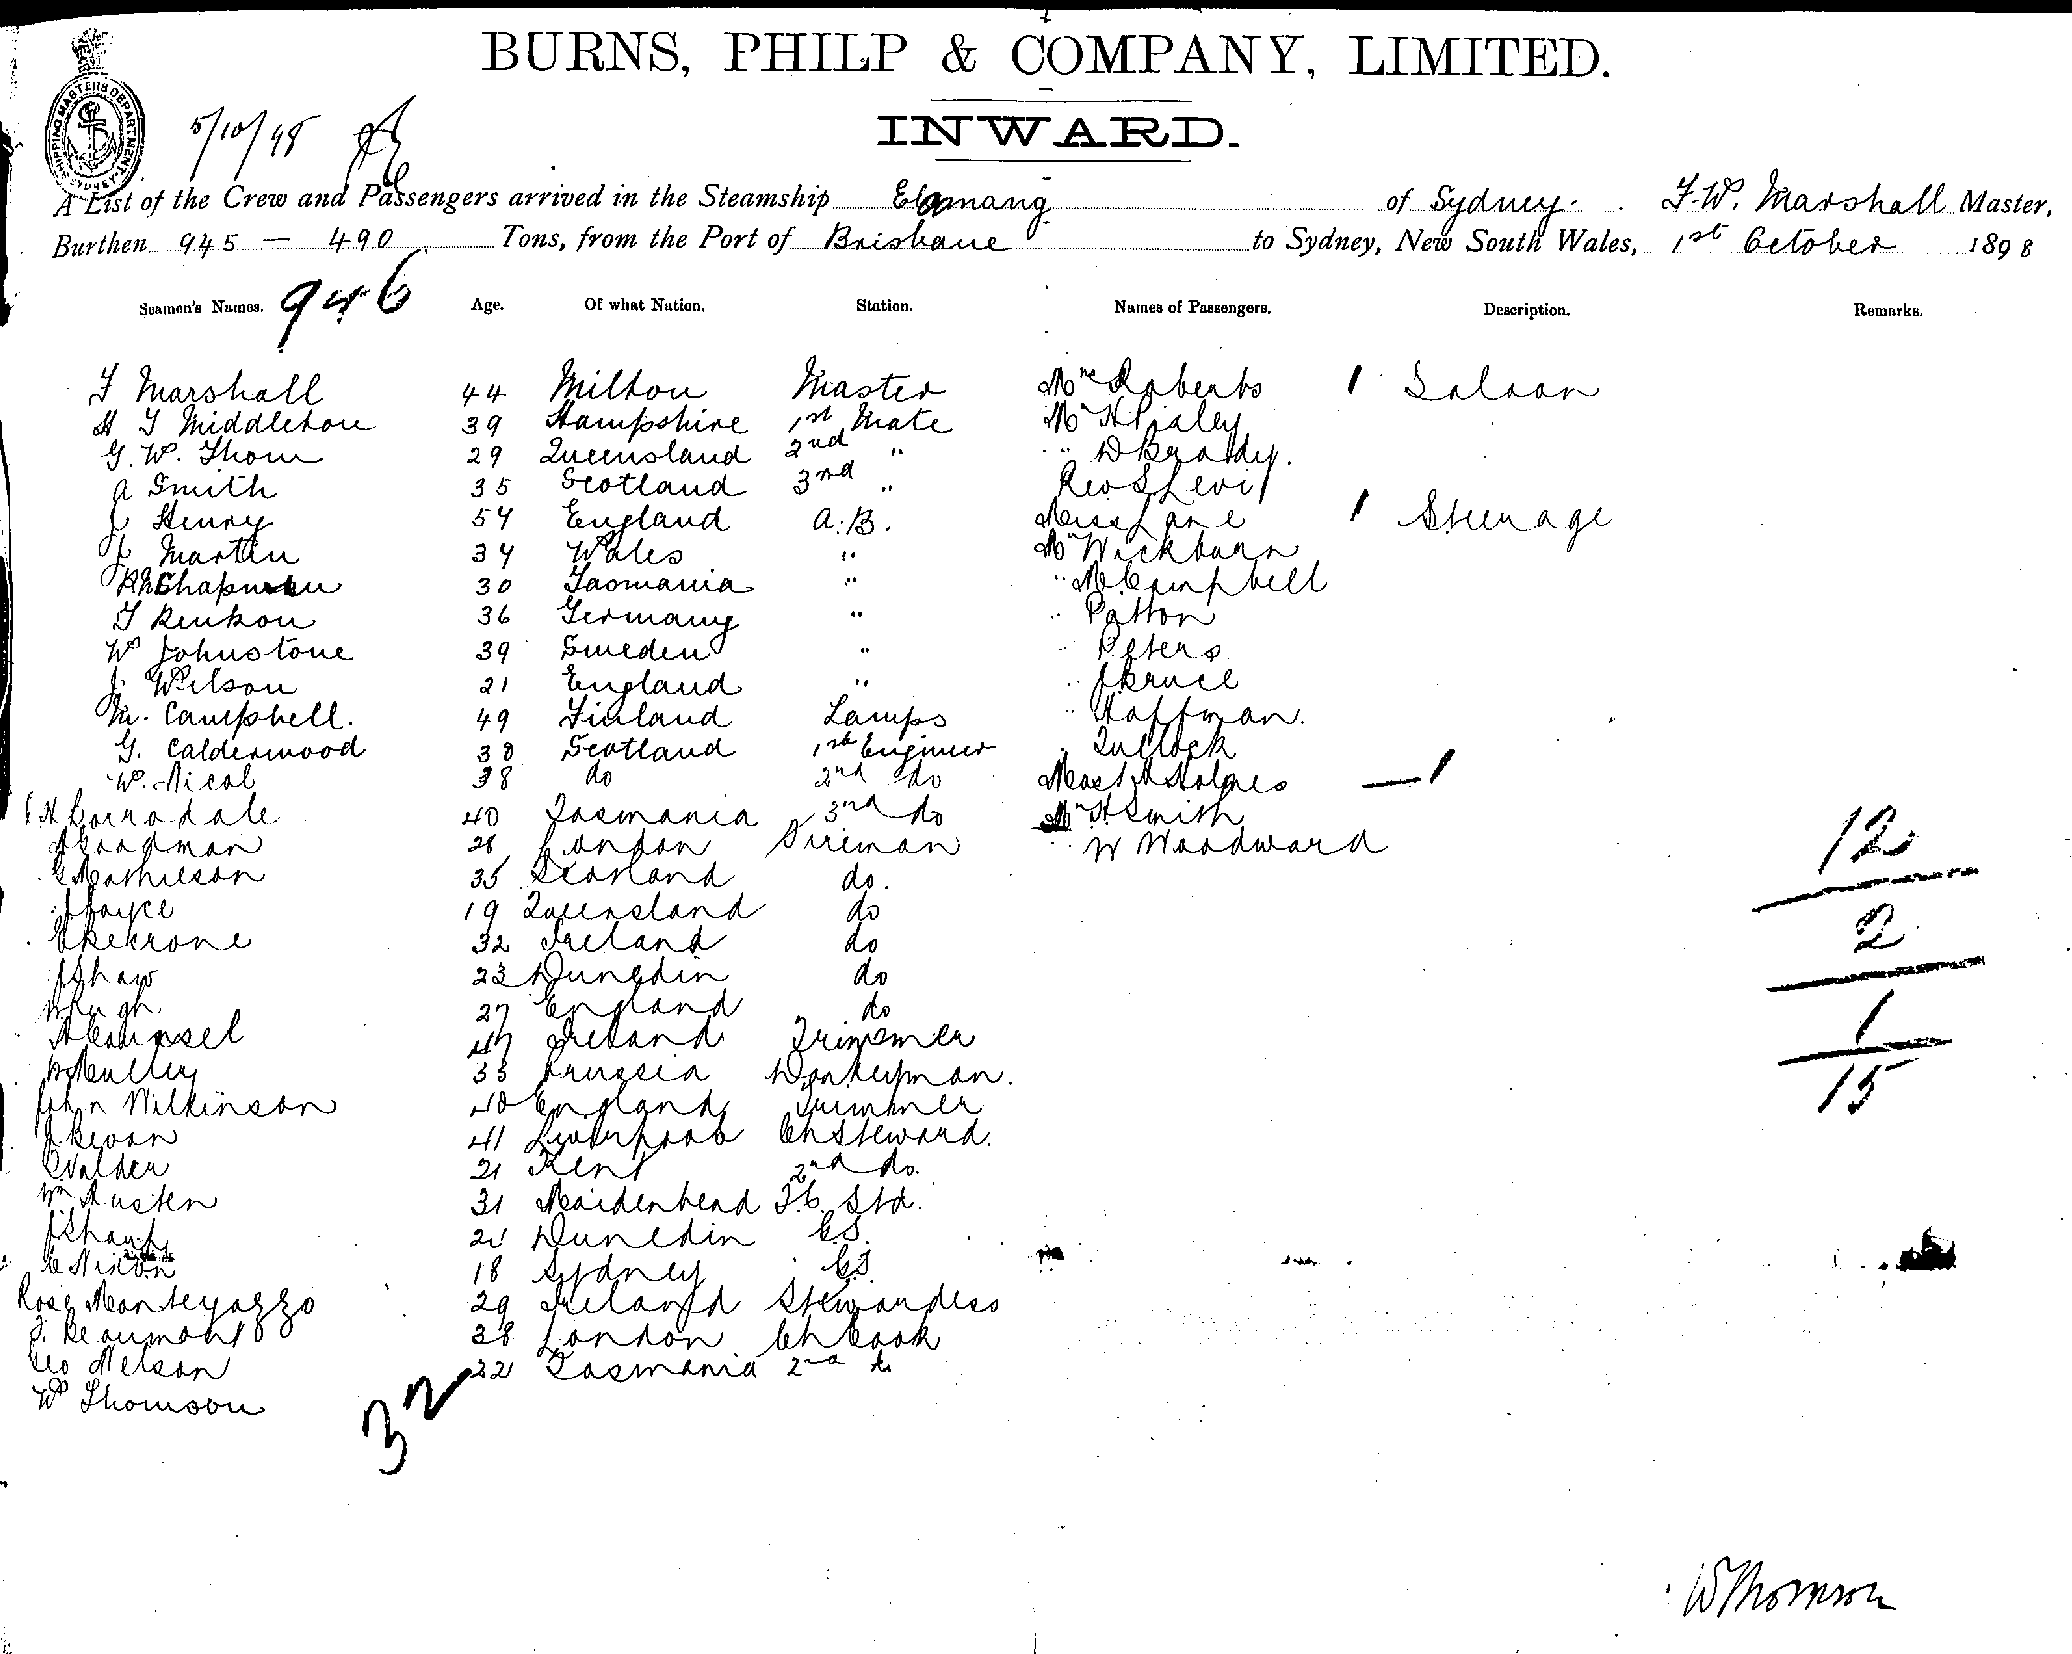 BURNS, PHILP & COMPANY, LIMITED.
INWARD.
5/10/98
A List of the Crew and Passengers arrived in the Steamship Elamang of Sydney. F. W. Marshall Master,
Burthen 945 — 490 Tons, from the Port of Brisbane to Sydney, New South Wales, 1st October 1898
946
Seamen's Names. Age. Of what Nation. Station. Names of Passengers. Description. Remarks.
F Marshall 44 Milton Master Mrs Roberts 1 Saloon
H J Middleton 39 Hampshire 1st Mate Mr
G. W. Thom 29 Queensland 2nd " " D Brady.
A Smith 35 Scotland 3rd " Rev S Levi
J Henry 54 England A.B. Miss Lane 1 Steerage
J Martin 34 Wales " Mr
Chapman 30 Tasmania " " Campbell
F 36 Germany " " Patton
W Johnstone 39 Sweden " " Peters
J. Wilson 21 England " "
M. Campbell. 49 Finland Lamps " Hoffman.
G. Calderwood 38 Scotland 1st Engineer " Tullock
W. Nicol 38 do 2nd do Mast H Holmes — 1
40 Tasmania 3rd do Mr H Smith
Goodman 28 London Fireman " W Woodward
Mathieson 35 Scotland do. 12
J Joyce 19 Queensland do
32 Ireland do 2
J Shaw 23 Dunedin do
27 England do 1
47 Ireland Trimmer
33 Prussia Donkeyman. 15
John Wilkinson 40 England Trimmer
J Bevan 41 Liverpool Ch Steward.
21 Kent 2nd do.
Wm Austen 31 Maidenhead F.C. Std.
J Sharp 21 Dunedin C.S.
C Nixon 18 Sydney C.S.
Rose Monteyazzo 29 Ireland Stewardess
F. Beaumont 38 London Ch Cook
Geo Nelson 22 Tasmania 2nd do
W Thomson
32
W Thomson